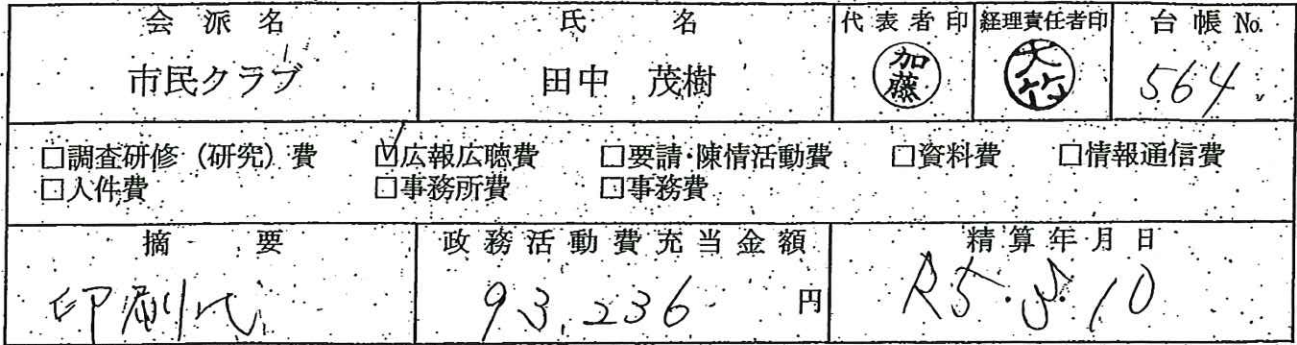 会派名 氏名 代表者印 経理責任者印 台帳No.
市民クラブ 田中 茂樹 加藤 大竹 564
□調査研修（研究）費 ☑広報広聴費 □要請・陳情活動費 □資料費 □情報通信費
□人件費 □事務所費 □事務費
摘要 政務活動費充当金額 精算年月日
印刷代 93,236 円 R5.5.10